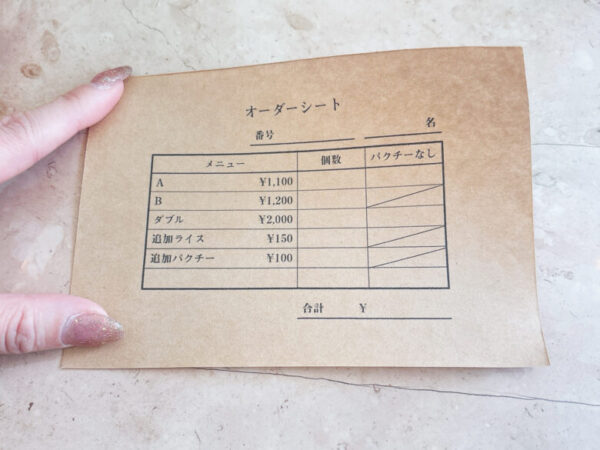 オーダーシート
番号 名
メニュー 個数 パクチーなし
A ¥1,100
B ¥1,200
ダブル ¥2,000
追加ライス ¥150
追加パクチー ¥100
合計 ¥